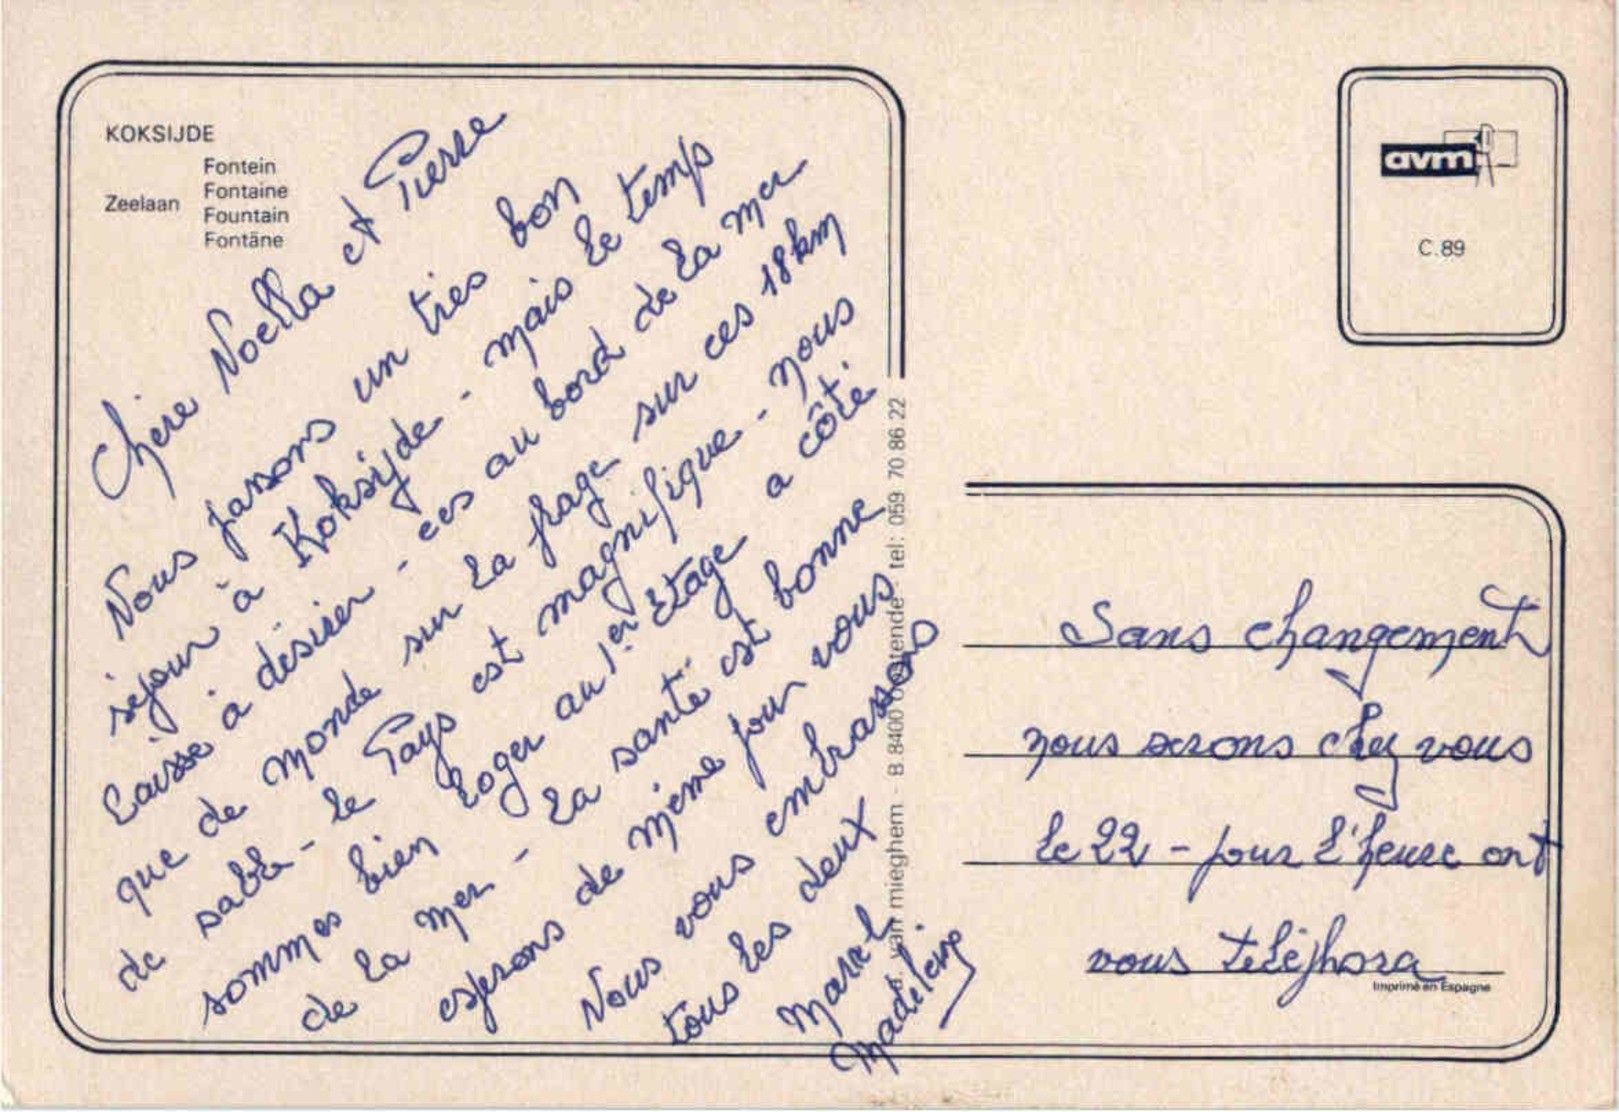 KOKSIJDE
Zeelaan
Fontein
Fontaine
Fountain
Fontäne
Chère Noella et Pierre
Nous passons un tres bon
séjour à Koksijde - mais le temps
laisse à désirer - ees au bord de la mer
que de monde sur la plage sur ces 18km
de sable - le Pays est magnifique - nous
sommes bien loger au 1er Etage a côté
de la mer - la santé est bonne
esperons de même pour vous
Nous vous embrassons
tous les deux
Marcel
Madeleine
avm
C.89
B 8400 oostende - tel: 059 70 86 22
van mieghem
Sans changement
nous serons chez vous
le 22 - pour l'heure ont
vous téléphora
Imprimé en Espagne